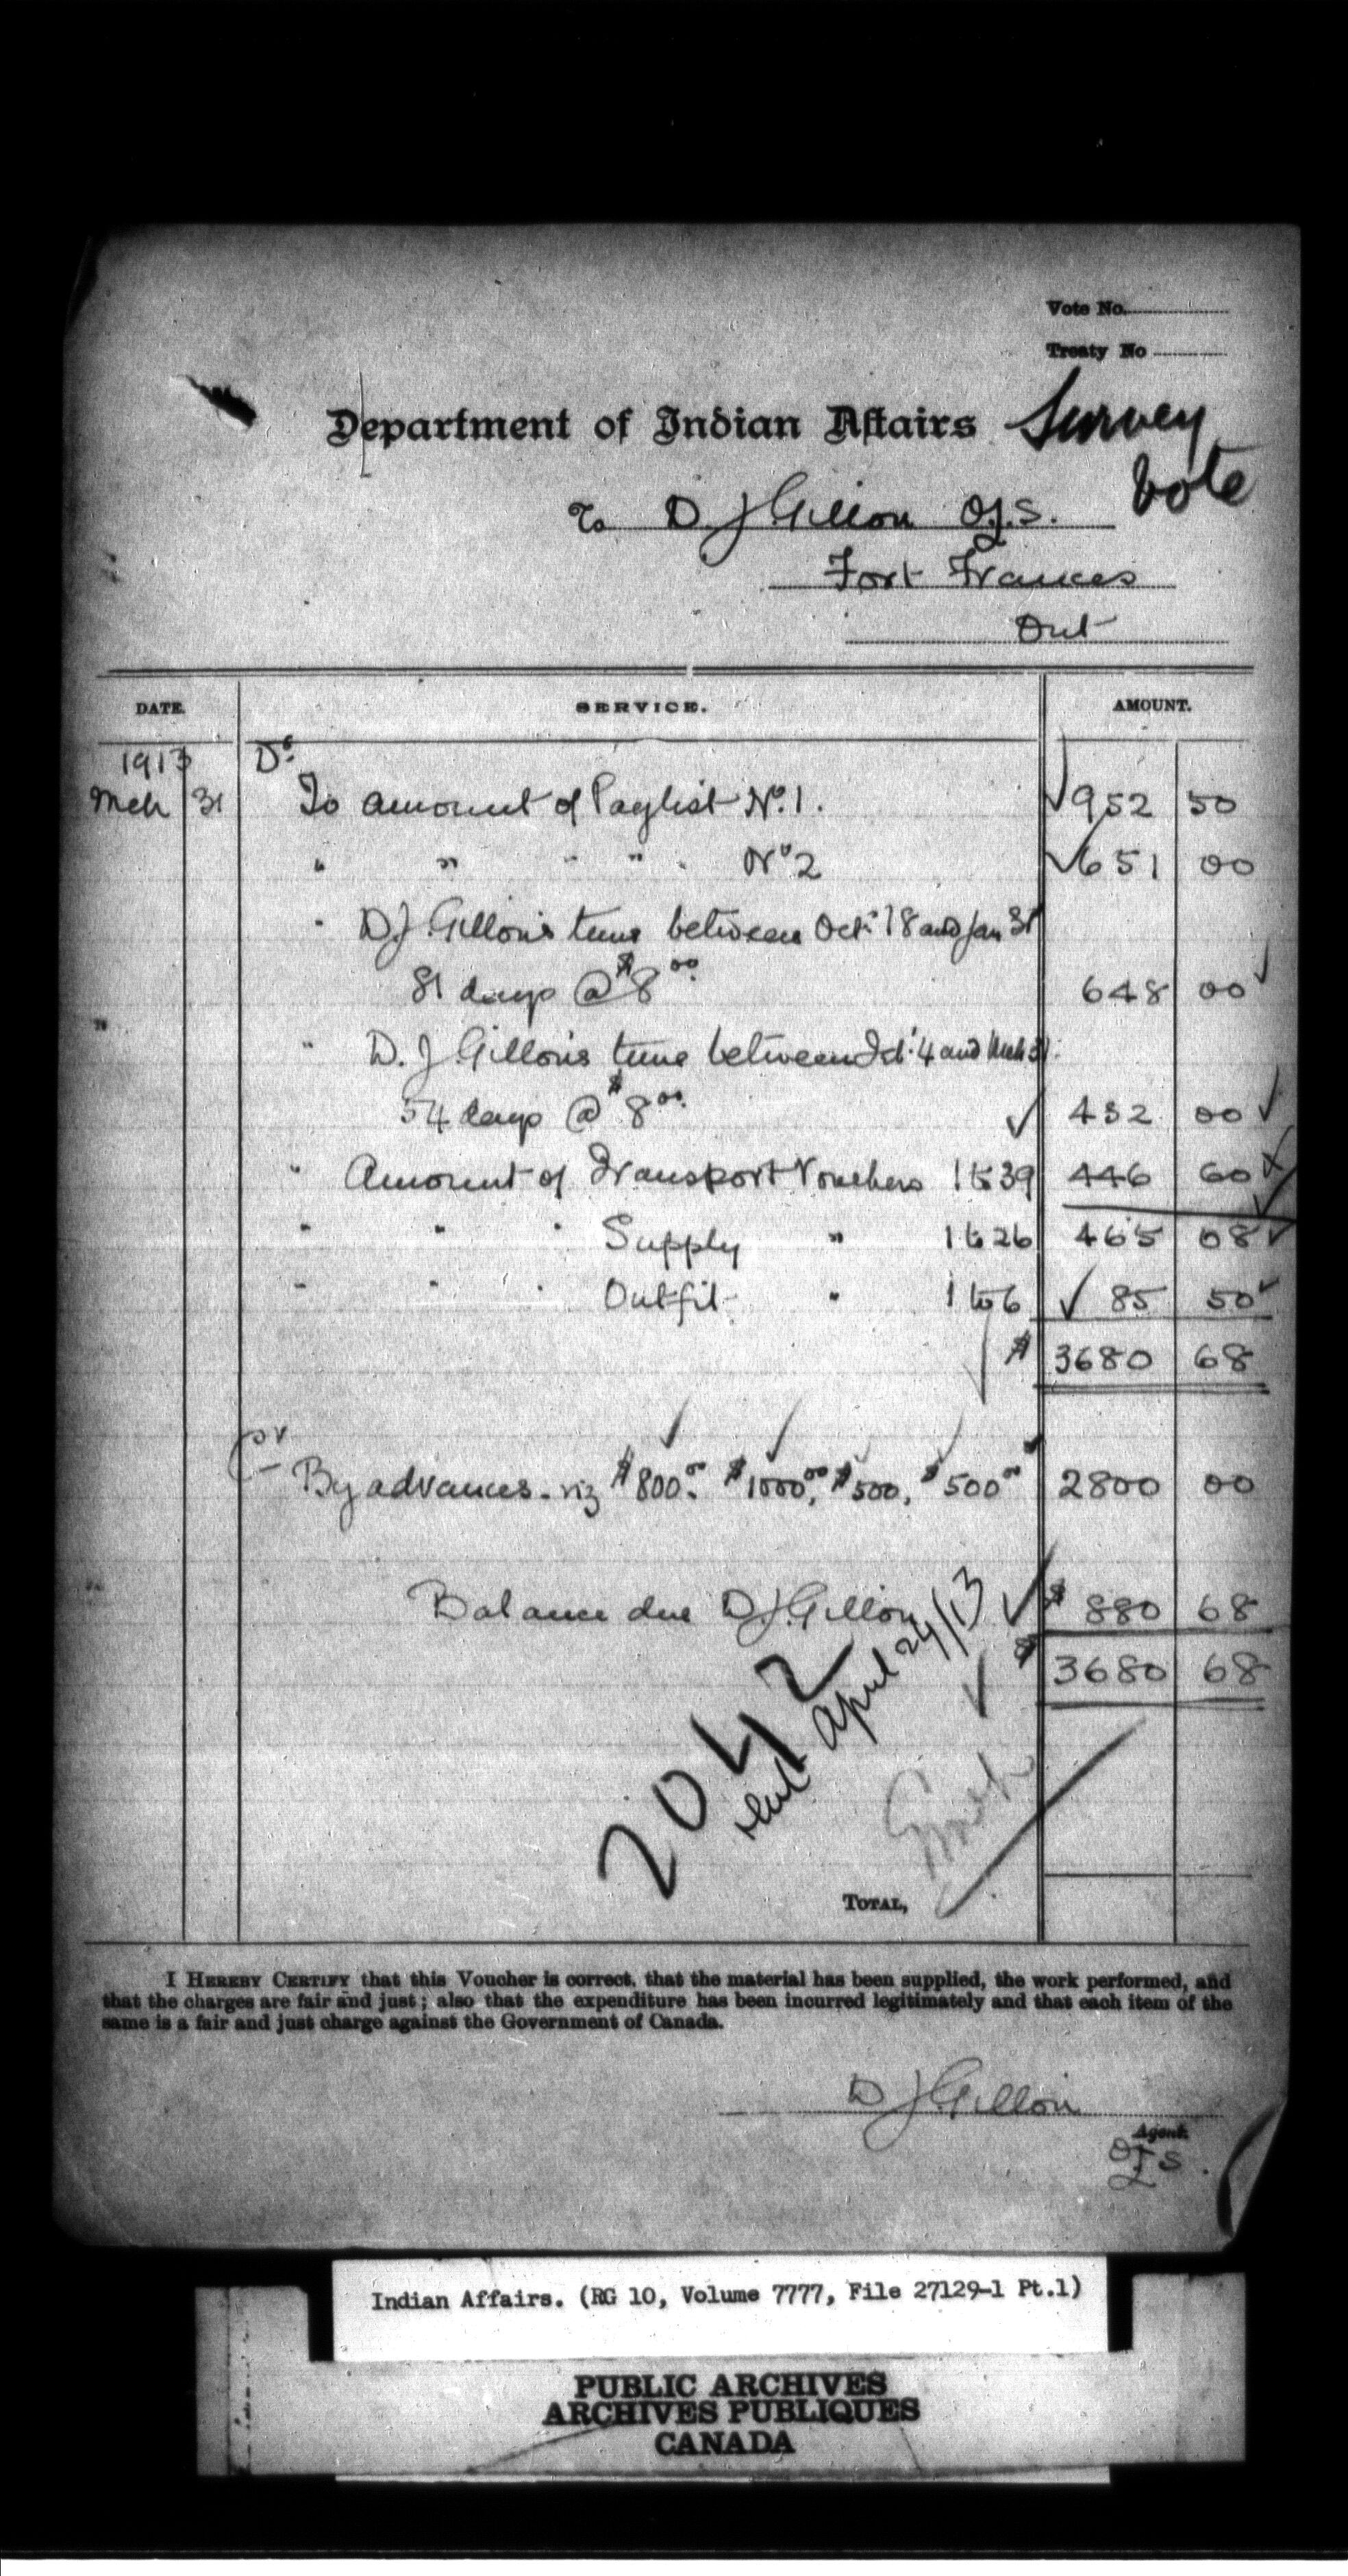 Vote No.
Treaty No
Department of Indian Affairs
Survey
Vote
To D. J. Gillon O.L.S.
Fort Frances
Ont
DATE. SERVICE. AMOUNT.
1913 Dr
Mch 31 To amount of Paylist No. 1. 952 50
" " " " " No 2 651 00
" D J Gillon's time between Oct. 18 and Jan 31
81 days @ $8 00 648 00
" " D. J Gillon's time between Fd. 4 and Mch 31.
54 days @ $8 00 432 00
" Amount of Transport Vouchers 1 to 39 446 60
" " " Supply " 1 to 26 465 08
" " " Outfit " 1 to 6 85 50
$ 3680 68
Cr
By advances - viz $800.00 $1000.00, $500, $500 00 2800 00
Balance due D J. Gillon $ 880 68
$ 3680 68
2042
sent April 24/13
TOTAL,
I HEREBY CERTIFY that this Voucher is correct, that the material has been supplied, the work performed, and
that the charges are fair and just; also that the expenditure has been incurred legitimately and that each item of the
same is a fair and just charge against the Government of Canada.
D J. Gillon
Agent.
O.L.S.
Indian Affairs. (RG 10, Volume 7777, File 27129-1 Pt.1)
PUBLIC ARCHIVES
ARCHIVES PUBLIQUES
CANADA